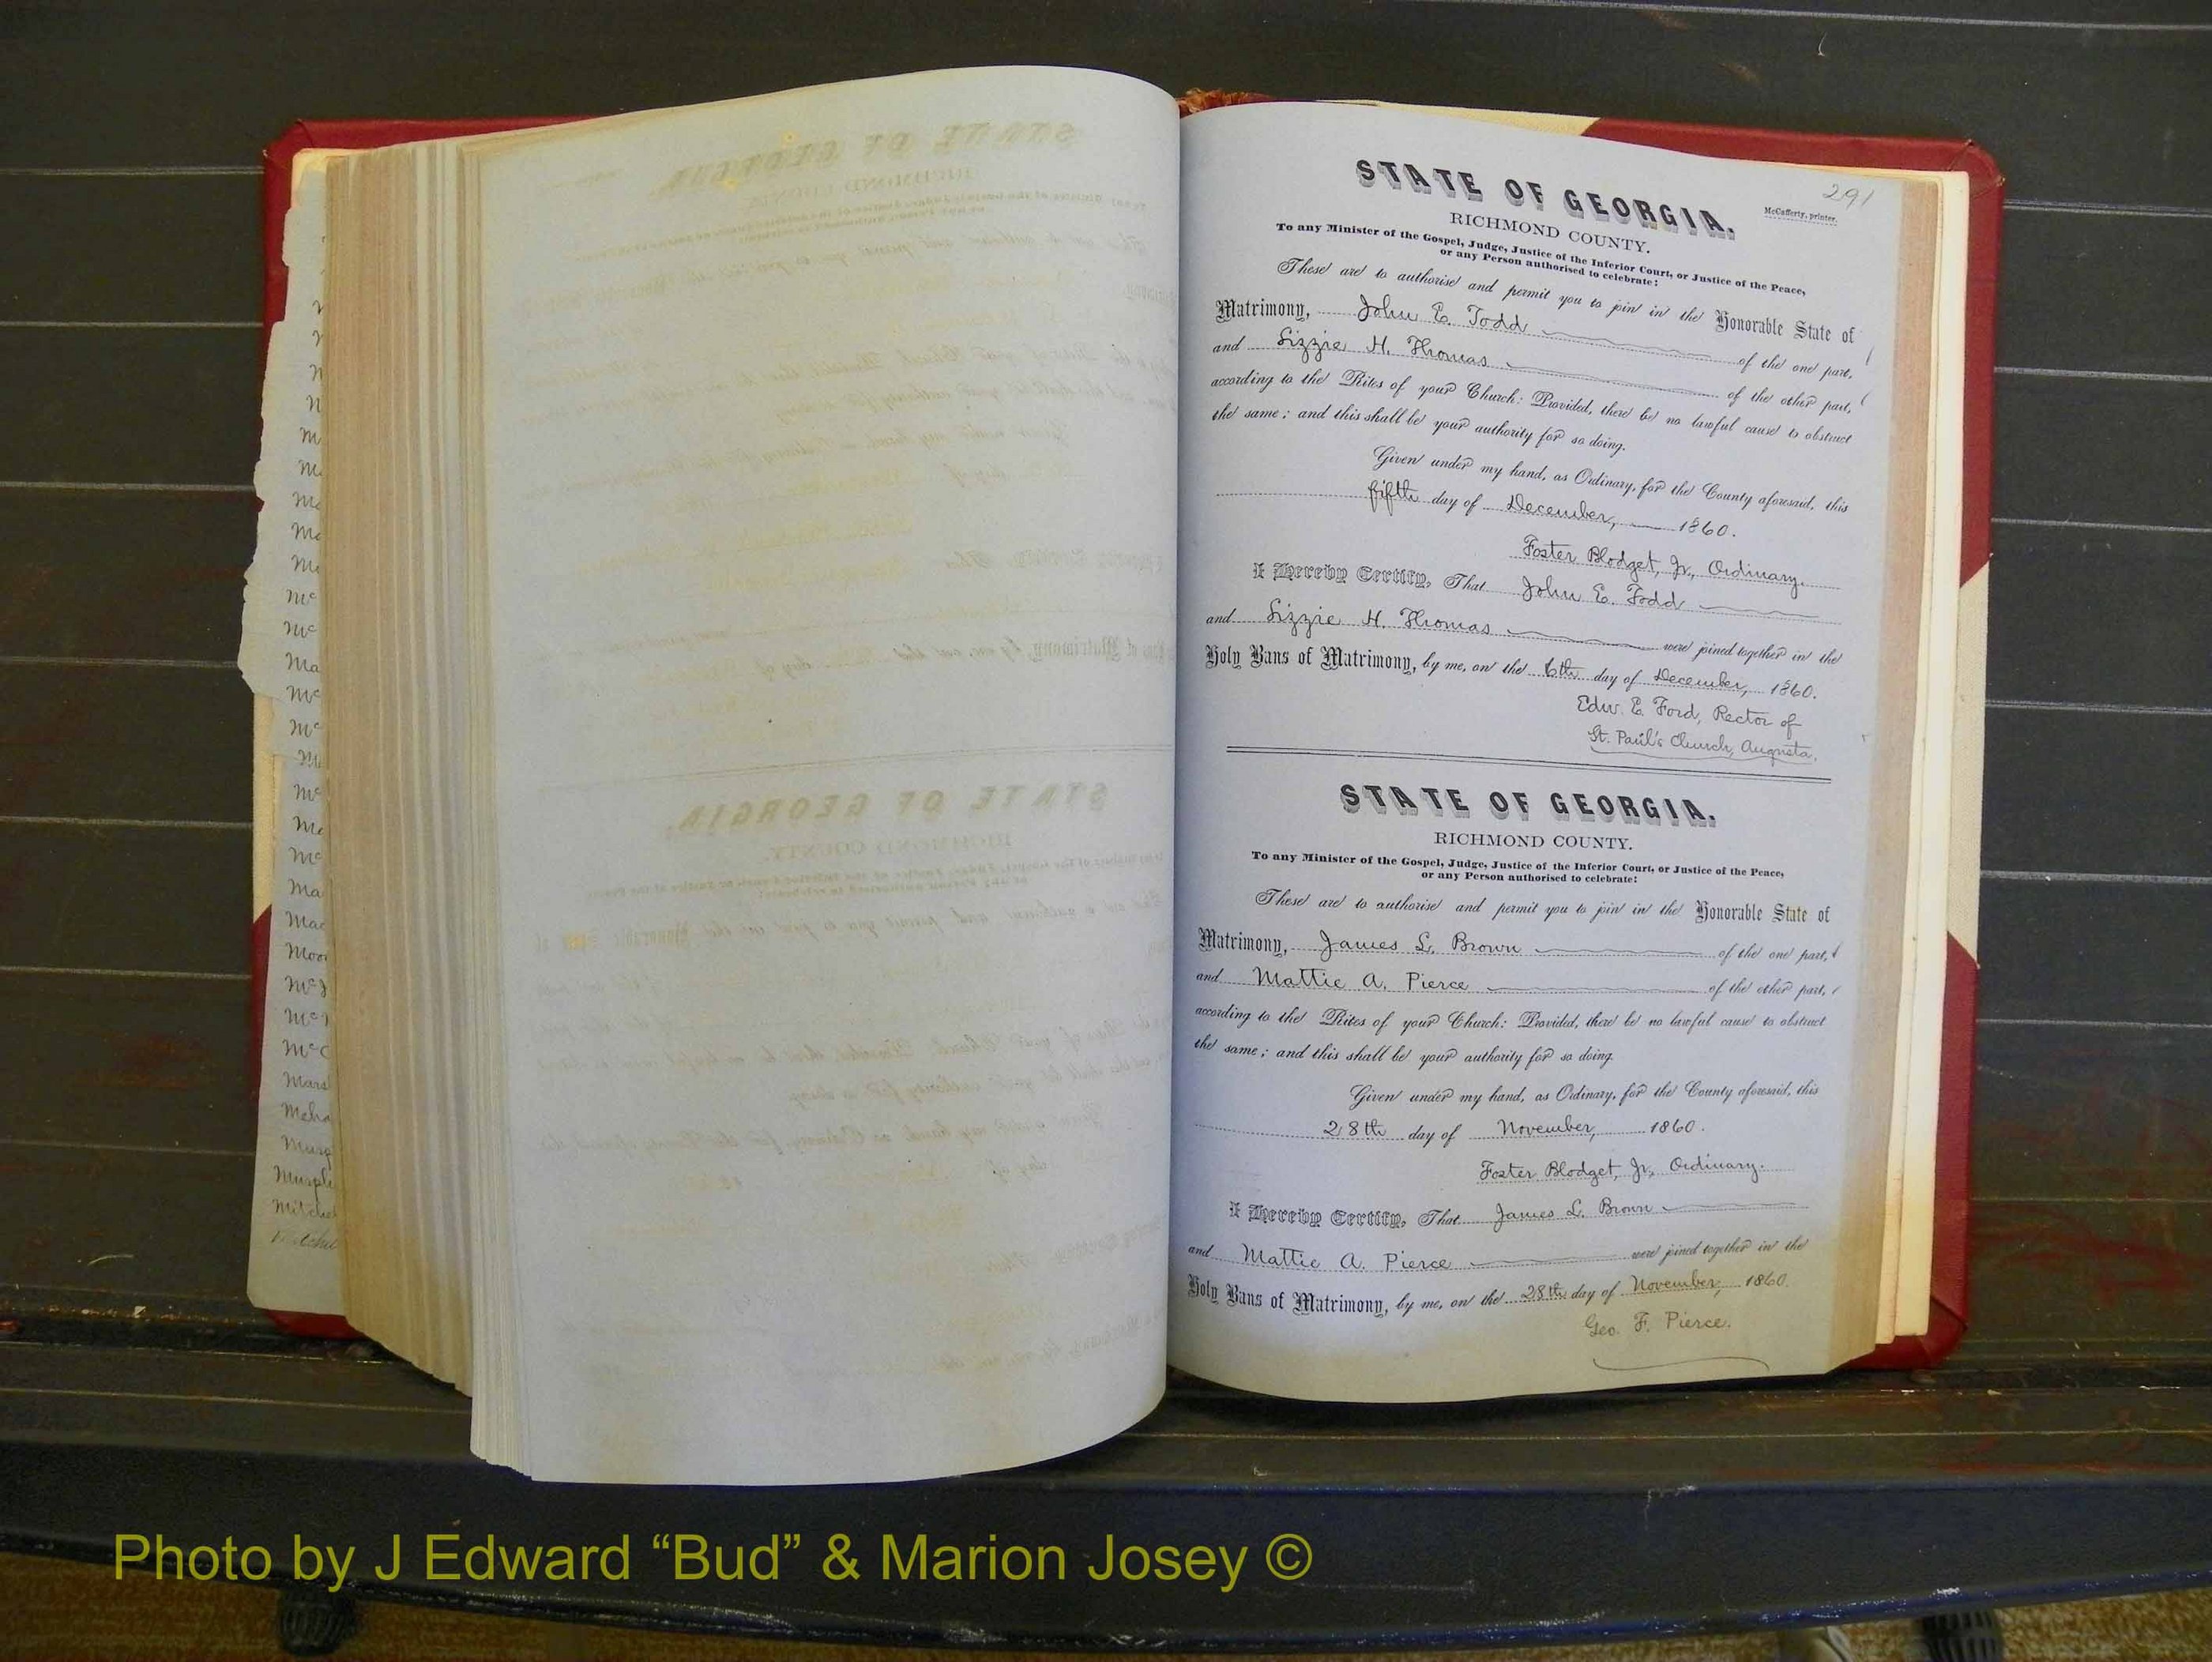 291
McCafferty, printer.
STATE OF GEORGIA.
RICHMOND COUNTY.
To any Minister of the Gospel, Judge, Justice of the Inferior Court, or Justice of the Peace,
or any Person authorised to celebrate:
These are to authorise and permit you to join in the Honorable State of
Matrimony, John E. Todd of the one part,
and Lizzie H. Thomas of the other part,
according to the Rites of your Church: Provided, there be no lawful cause to obstruct
the same; and this shall be your authority for so doing.
Given under my hand, as Ordinary, for the County aforesaid, this
fifth day of December, 1860.
Foster Blodget, Jr., Ordinary.
I Hereby Certify, That John E. Todd
and Lizzie H. Thomas were joined together in the
Holy Bans of Matrimony, by me, on the 6th day of December, 1860.
Edw. E. Ford, Rector of
St. Paul's Church, Augusta.
STATE OF GEORGIA.
RICHMOND COUNTY.
To any Minister of the Gospel, Judge, Justice of the Inferior Court, or Justice of the Peace,
or any Person authorised to celebrate:
These are to authorise and permit you to join in the Honorable State of
Matrimony, James L. Brown of the one part,
and Mattie A. Pierce of the other part,
according to the Rites of your Church: Provided, there be no lawful cause to obstruct
the same; and this shall be your authority for so doing.
Given under my hand, as Ordinary, for the County aforesaid, this
28th day of November, 1860.
Foster Blodget, Jr., Ordinary.
I Hereby Certify, That James L. Brown
and Mattie A. Pierce were joined together in the
Holy Bans of Matrimony, by me, on the 28th day of November, 1860.
Geo. F. Pierce.
Photo by J Edward “Bud” & Marion Josey ©